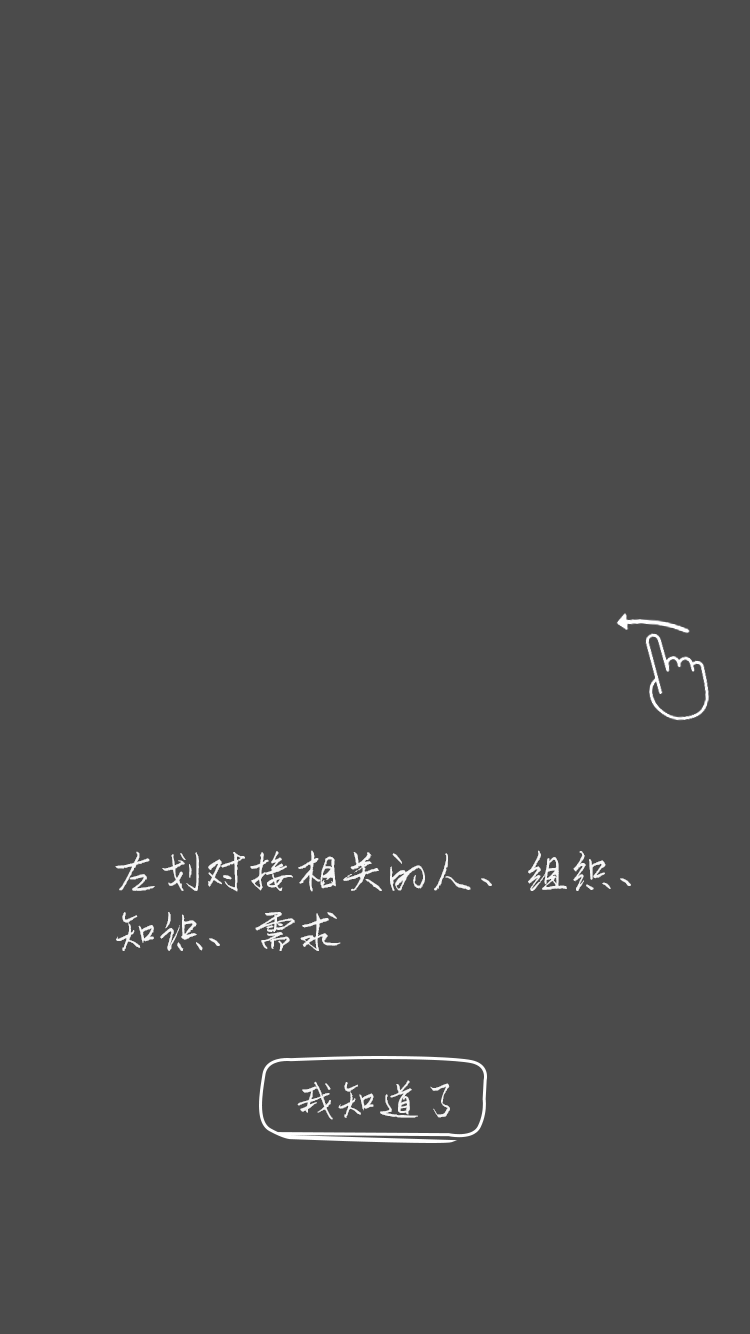 左划对接相关的人、组织、
知识、需求
我知道了